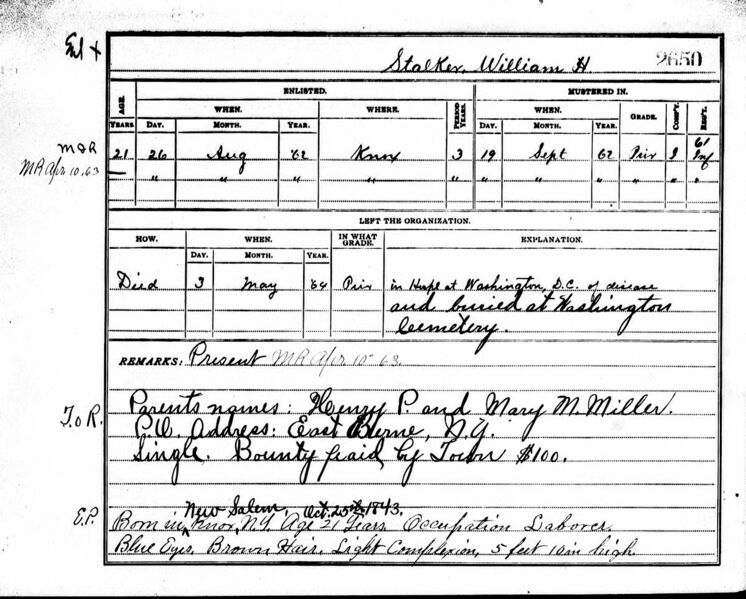 Enl +
Stalker, William H. 2650
ENLISTED. MUSTERED IN.
AGE. WHEN. WHERE. PERIOD YEARS. WHEN. GRADE. COMP'Y. REG'T.
YEARS. DAY. MONTH. YEAR. DAY. MONTH. YEAR.
M & R 21 26 Aug '62 Knox 3 19 Sept '62 Priv I 61 Inf
MR Apr 10-63 — " " " " " " " " " "
LEFT THE ORGANIZATION.
HOW. WHEN. IN WHAT GRADE. EXPLANATION.
DAY. MONTH. YEAR.
Died 3 May '64 Priv in Hospl at Washington, D.C. of disease
and buried at Washington
Cemetery.
REMARKS: Present MR Apr 10-63.
T. o R. Parents names: Henry P. and Mary M. Miller.
P.O. Address: East Berne, N.Y.
Single. Bounty paid by Town $100.
New Salem, Oct. 25th, 1843.
E.P. Born in Knox, N.Y. Age 21 Years. Occupation Laborer.
Blue Eyes, Brown Hair, Light Complexion, 5 feet 10 in high.